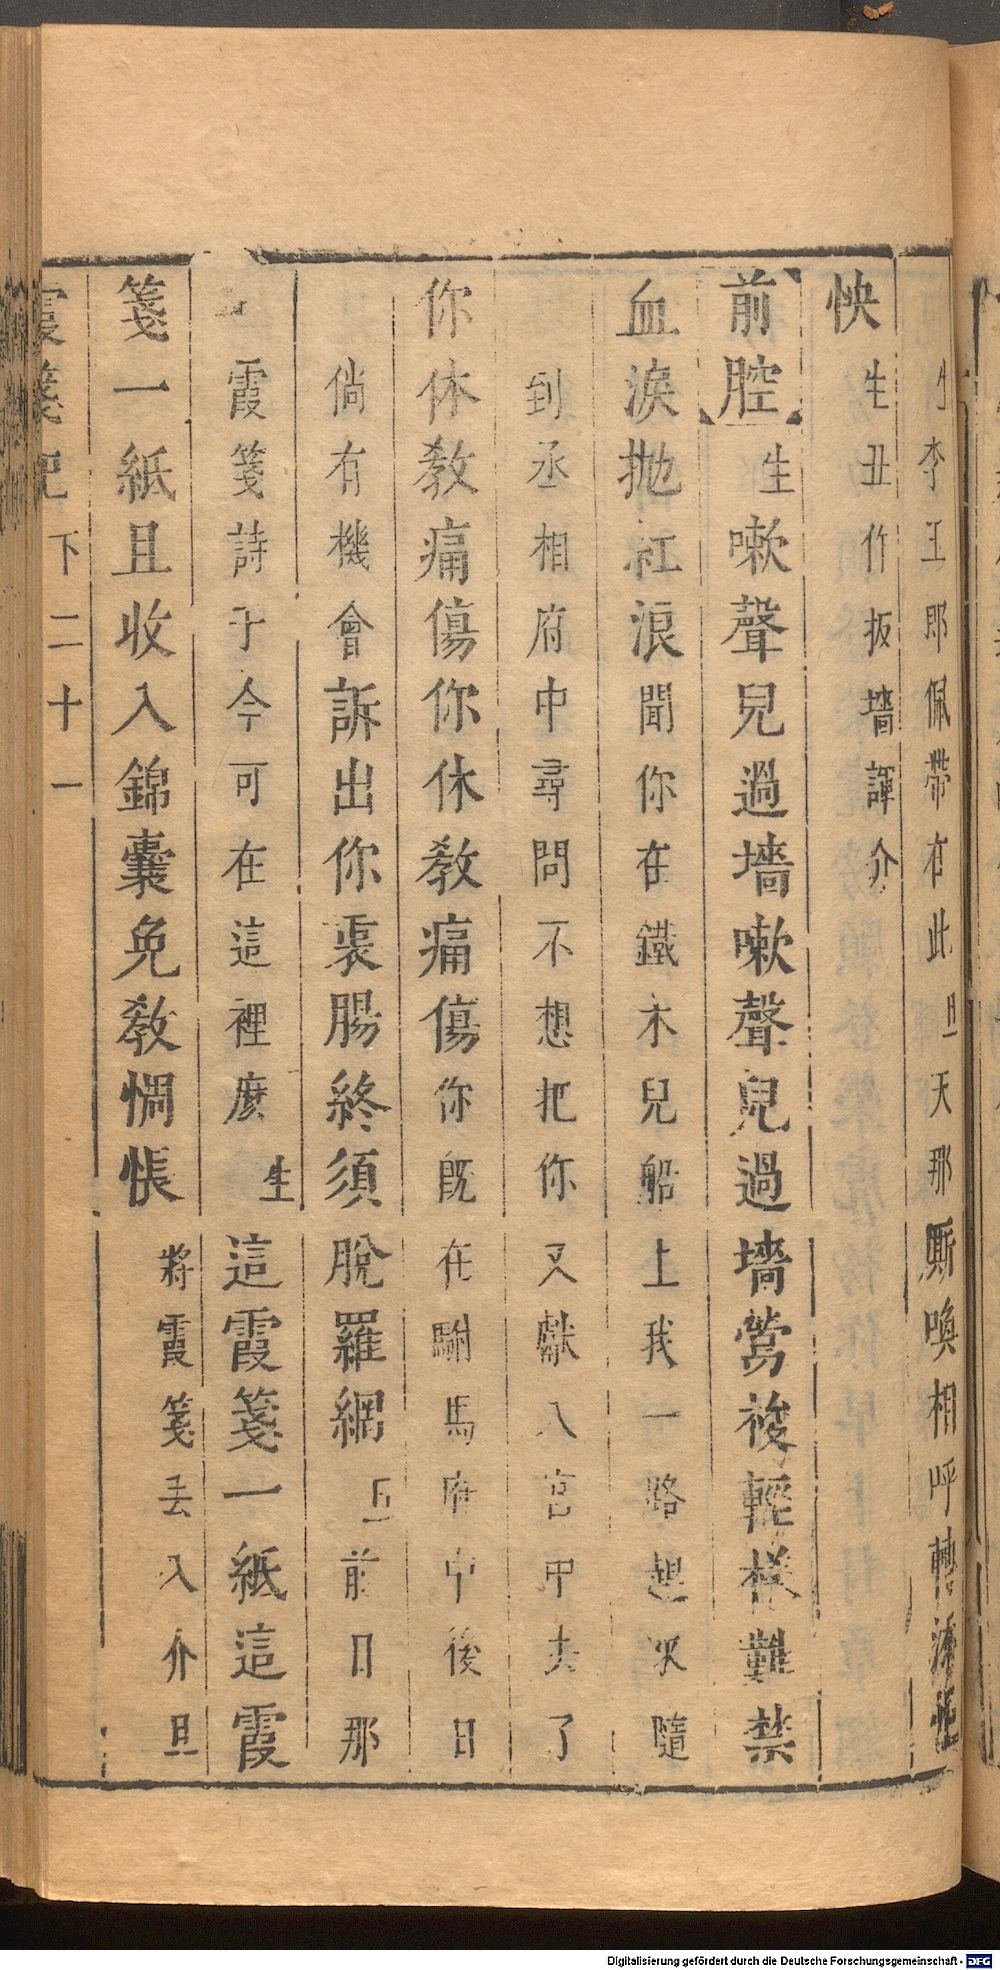 生李玉郎佩帶在此旦天那厮喚相呼轉
怏生丑作扳墻諢介
前腔生嗽聲兒過墻嗽聲兒過墻鶯梭輕樣難禁
血淚抛紅浪聞你在鐵木兒船上我一路趕來隨
到丞相府中尋問不想把你又獻入宮中去了
你休教痛傷你休教痛傷你既在駙馬府中後日
倘有機會訴出你衷腸終須脫羅網旦前日那
霞箋詩于今可在這裡麽生這霞箋一紙這霞
箋一紙且收入錦囊免教惆悵將霞箋丢入介旦
霞箋記下二十一
Digitalisierung gefördert durch die Deutsche Forschungsgemeinschaft - DFG